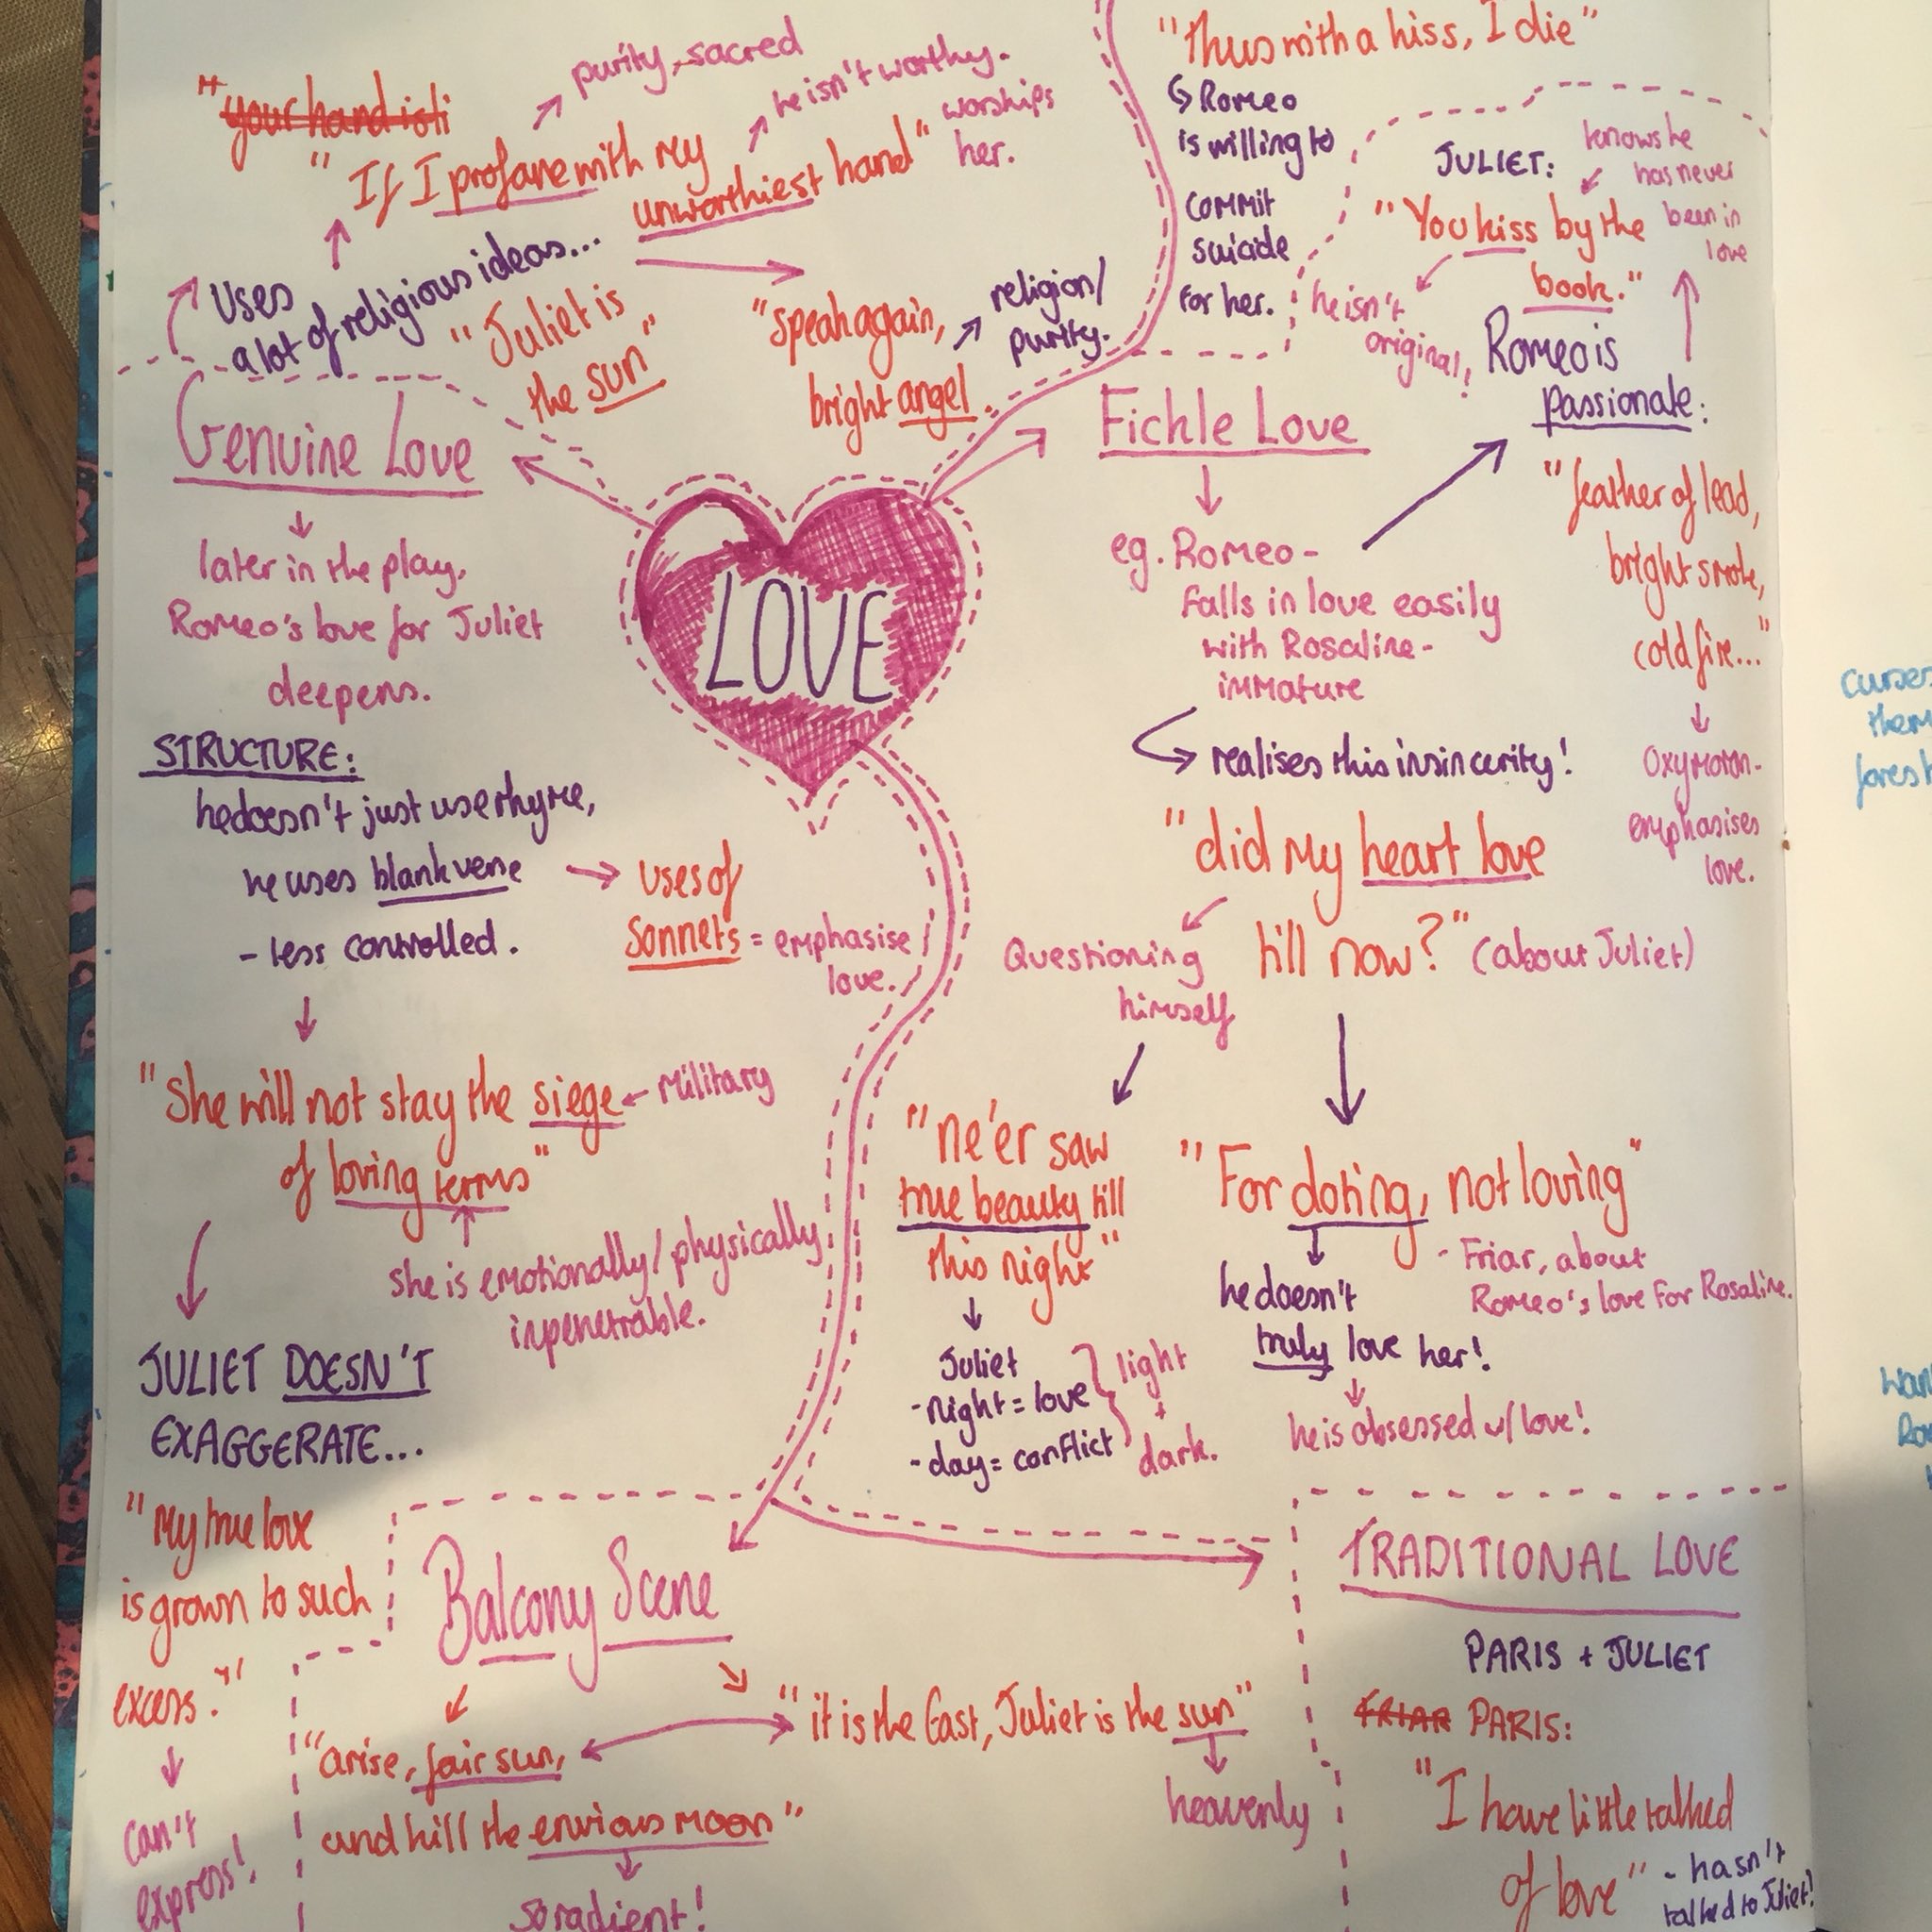 "your hand isti
"If I profane with my
unworthiest hand"
purity, sacred
he isn't worthy.
worships
her.
Uses
a lot of religious ideas...
"Juliet is
the sun"
"speak again,
bright angel.
religion/
purity.
Genuine Love
later in the play,
Romeo's love for Juliet
deepens.
STRUCTURE:
he doesn't just use rhyme,
he uses blank verse
- less controlled.
uses of
sonnets = emphasise
love.
"She will not stay the siege
of loving terms"
military
she is emotionally/physically
inpenetrable.
JULIET DOESN'T
EXAGGERATE...
"My true love
is grown to such
excess."
can't
express!
LOVE
"Thus with a kiss, I die"
Romeo
is willing to
commit
suicide
for her.
JULIET:
"You kiss by the
book."
knows he
has never
been in
love
he isn't
original!
Fickle Love
eg. Romeo -
falls in love easily
with Rosaline -
immature
realises this insincerity!
Romeo is
passionate:
"feather of lead,
bright smoke,
cold fire..."
oxymoron -
emphasises
love.
"did my heart love
till now?" (about Juliet)
Questioning
himself
"ne'er saw
true beauty till
this night"
Juliet
- night = love
- day = conflict
light
+
dark.
"For doting, not loving"
- Friar, about
Romeo's love for Rosaline.
he doesn't
truly love her!
he is obsessed w/ love!
Balcony Scene
"arise, fair sun,
and kill the envious moon"
so radient!
"it is the East, Juliet is the sun"
heavenly
TRADITIONAL LOVE
PARIS + JULIET
FRIAR PARIS:
"I have little talked
of love" - hasn't
talked to Juliet!
curses